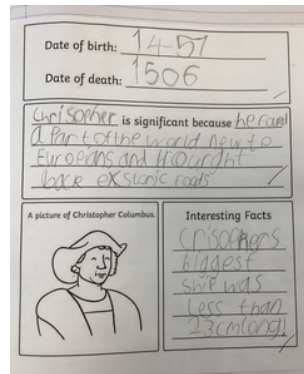 Date of birth: 1457
Date of death: 1506
Chrisopher is significant because he found
a part of the world new to
Europeans and brought
back exstonic foods
A picture of Christopher Columbus.
Interesting Facts
Crisophers
biggest
ship was
less than
23cm long!